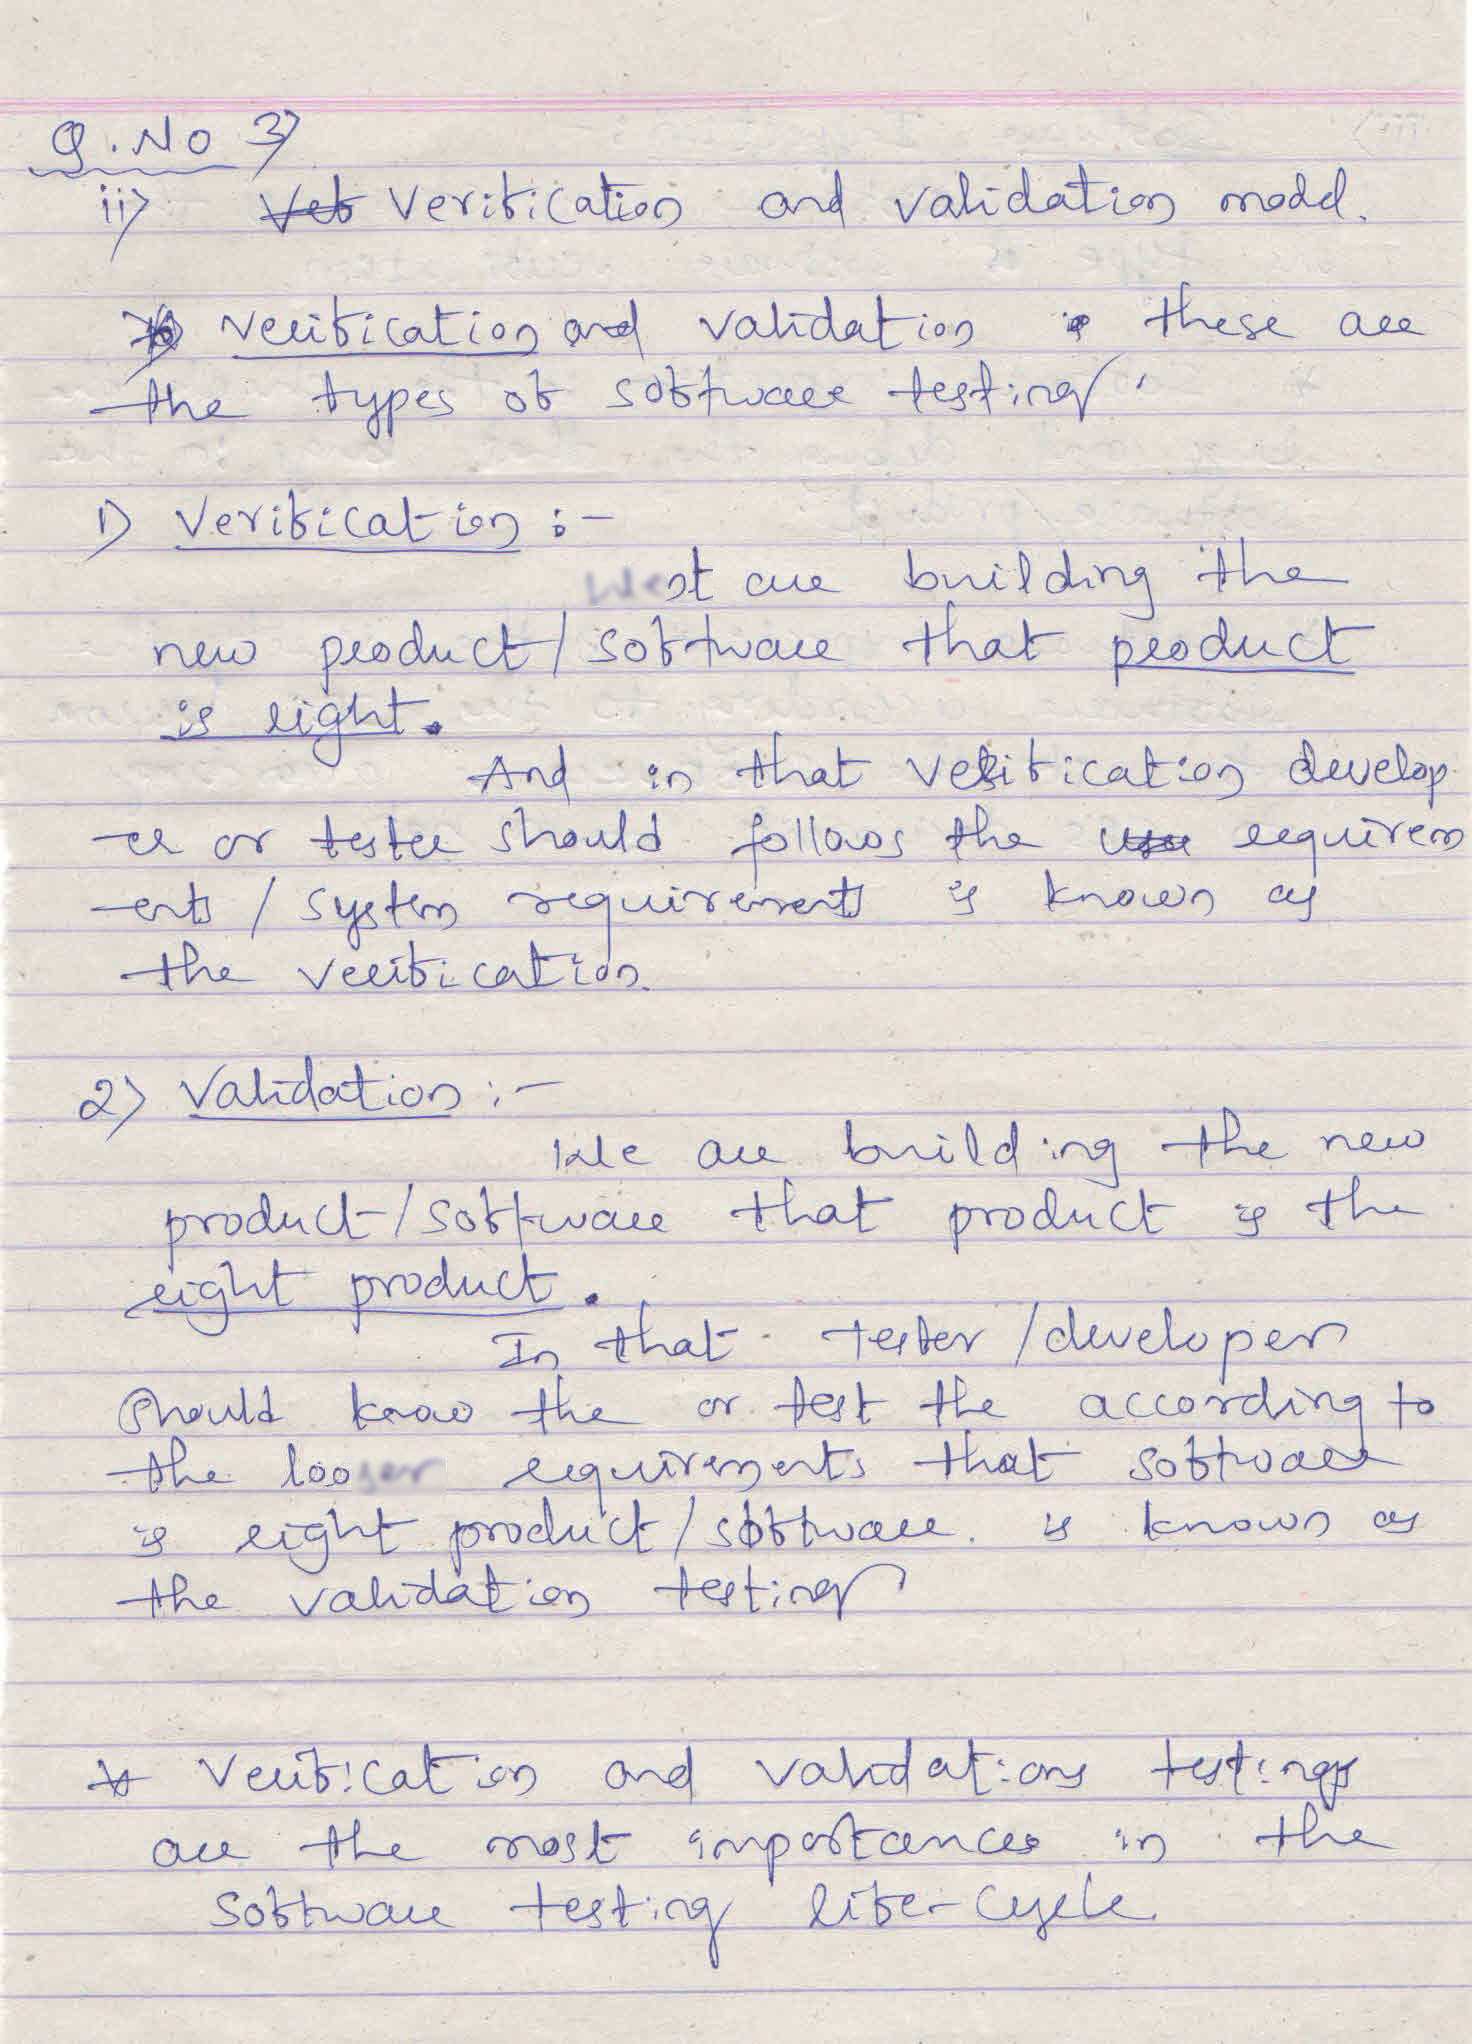 Q.No 3)
ii) Verification and validation model.
verification and validation these are
the types of software testing.
1) Verification :-
are building the
new product/software that product
is right.
And in that verification develop
-er or tester should follows the requirem
-ents / system requirements is known as
the verification.
2) Validation :-
We are building the new
product/software that product is the
right product.
In that tester/developer
should know the or test the according to
the requirements that software
is right product/software. is known as
the validation testing
* Verification and validations testings
are the most importances in the
software testing life-cycle.